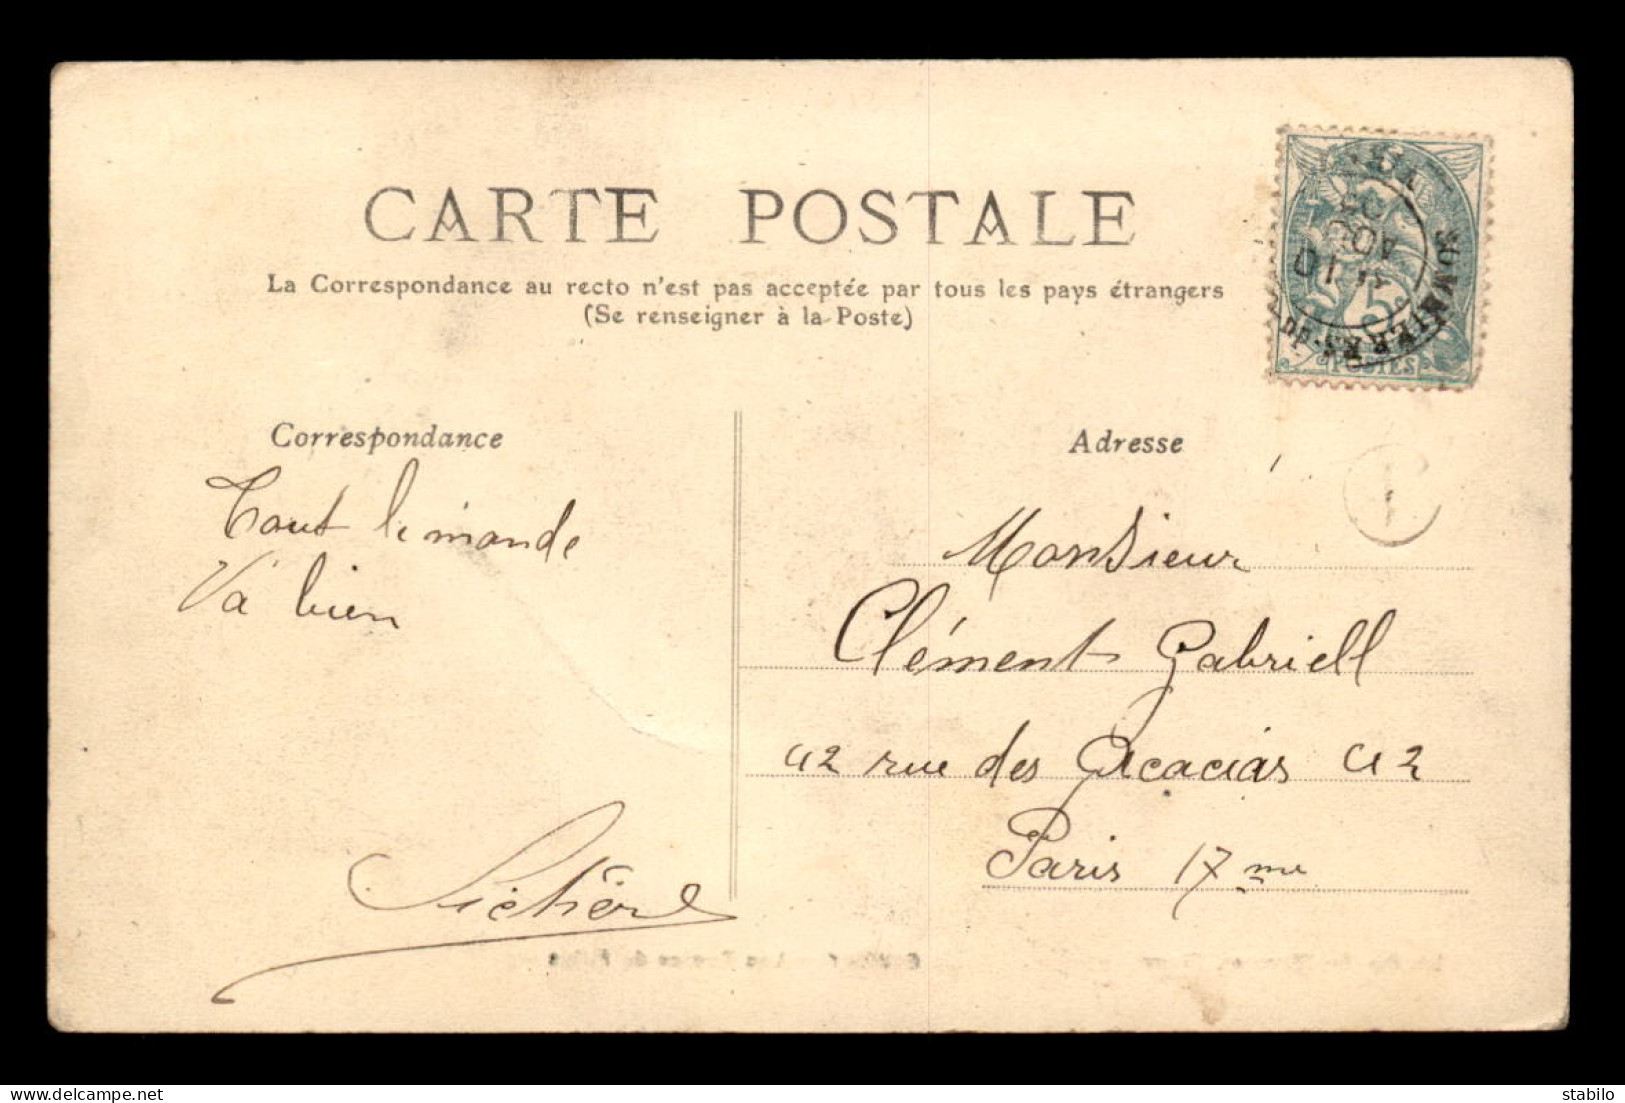 CARTE POSTALE
La Correspondance au recto n'est pas acceptée par tous les pays étrangers
(Se renseigner à la Poste)
5c
POSTES
Correspondance
Tout le monde
Va bien
Adresse
Monsieur
Clément Gabriell
42 rue des Acacias 42
Paris 17me
www.delcampe.net
stabilo